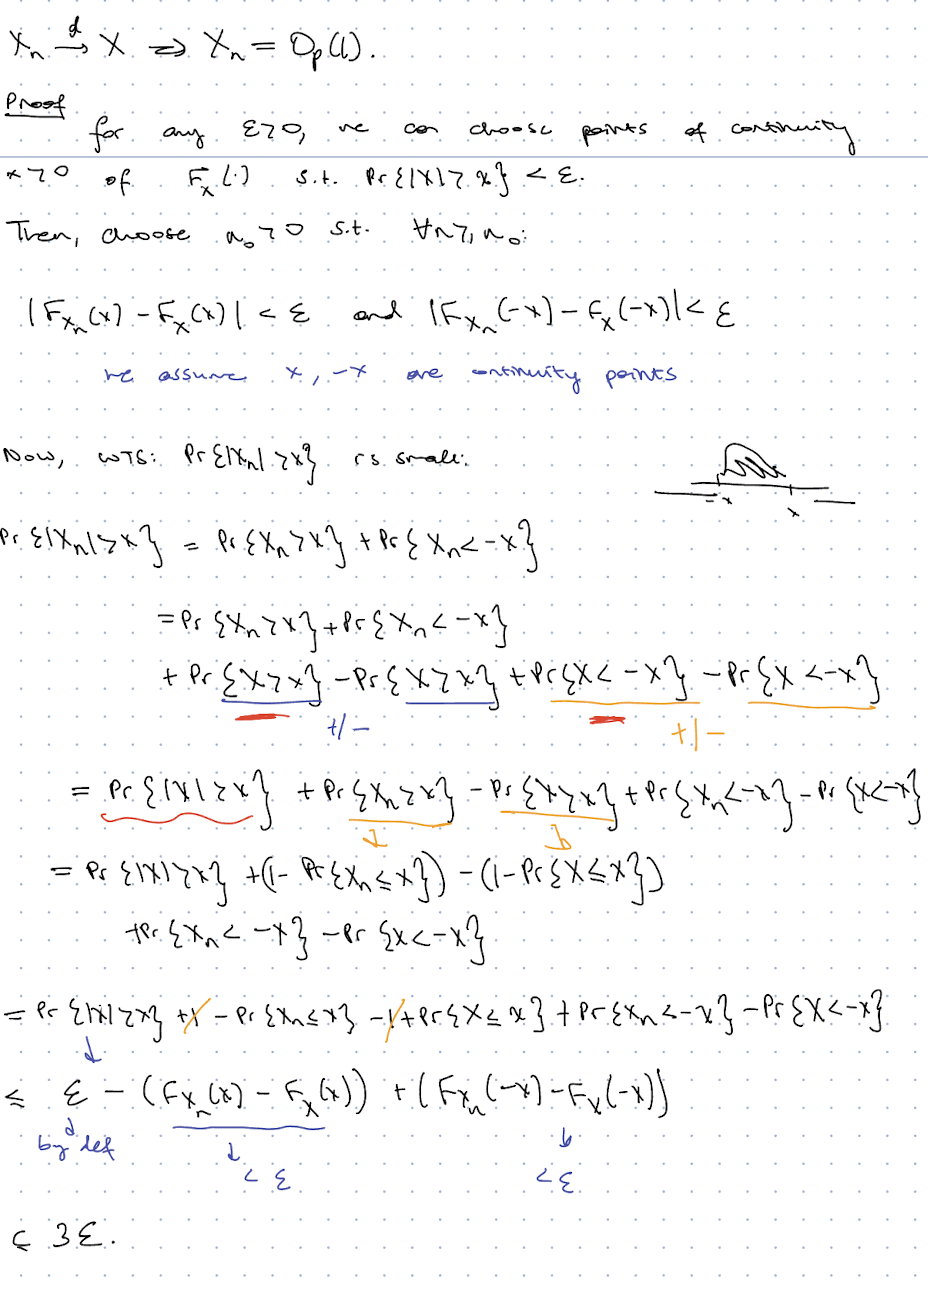 Xₙ →ᵈ X ⇒ Xₙ = Oₚ(1).
Proof
for any ε>0, we can choose points of continuity
x>0 of F_X(·) s.t. Pr{|X|>x} < ε.
Then, choose n₀>0 s.t. ∀n≥n₀:
|F_{Xₙ}(x) - F_X(x)| < ε and |F_{Xₙ}(-x) - F_X(-x)| < ε
we assume x, -x are continuity points
Now, WTS: Pr{|Xₙ|>x} is small.
-x x
Pr{|Xₙ|>x} = Pr{Xₙ>x} + Pr{Xₙ<-x}
= Pr{Xₙ>x} + Pr{Xₙ<-x}
+ Pr{X>x} - Pr{X>x} + Pr{X<-x} - Pr{X<-x}
+/- +/-
= Pr{|X|>x} + Pr{Xₙ>x} - Pr{X>x} + Pr{Xₙ<-x} - Pr{X<-x}
= Pr{|X|>x} + (1 - Pr{Xₙ≤x}) - (1 - Pr{X≤x})
+Pr{Xₙ<-x} - Pr{X<-x}
= Pr{|X|>x} + 1 - Pr{Xₙ≤x} - 1 + Pr{X≤x} + Pr{Xₙ<-x} - Pr{X<-x}
≤ ε - (F_{Xₙ}(x) - F_X(x)) + (F_{Xₙ}(-x) - F_X(-x))
by def
< ε < ε
≤ 3ε.